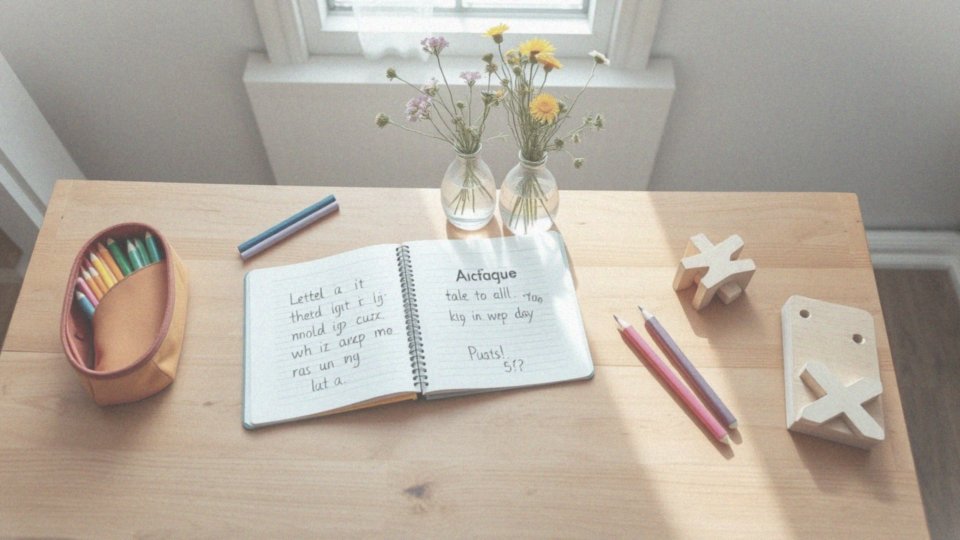 Lettel a it
therd igit r lg.
nnold ig? cuzc
wh iz arep me
ras un ng
lat a.
Aicfaque
tale to all
kig in wep day
Puats!
5!?